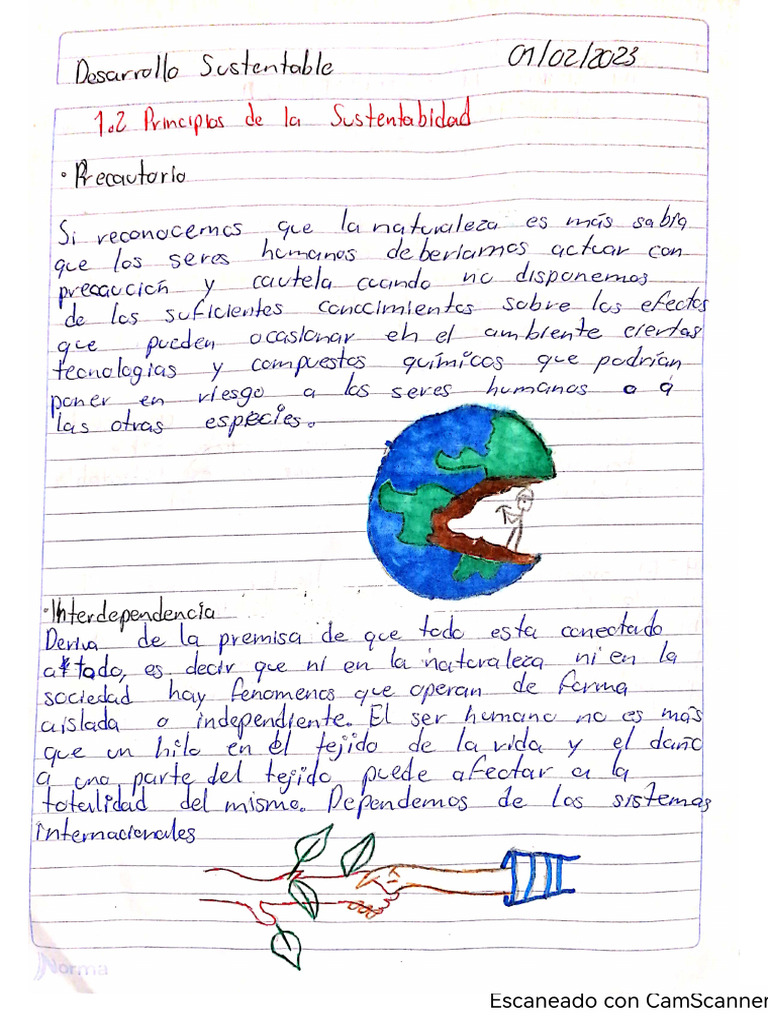 Desarrollo Sustentable 01/02/2023
1.2 Principios de la Sustentabidad
• Precautorio
Si reconocemos que la naturaleza es más sabia
que los seres humanos deberíamos actuar con
precaución y cautela cuando no disponemos
de los suficientes conocimientos sobre los efectos
que pueden ocasionar en el ambiente ciertas
tecnologías y compuestos químicos que podrían
poner en riesgo a los seres humanos o a
las otras especies.
• Interdependencia
Deriva de la premisa de que todo esta conectado
a todo, es decir que ni en la naturaleza ni en la
sociedad hay fenomenos que operan de forma
aislada o independiente. El ser humano no es más
que un hilo en el tejido de la vida y el daño
a una parte del tejido puede afectar a la
totalidad del mismo. Dependemos de los sistemas
internacionales
Norma
Escaneado con CamScanner